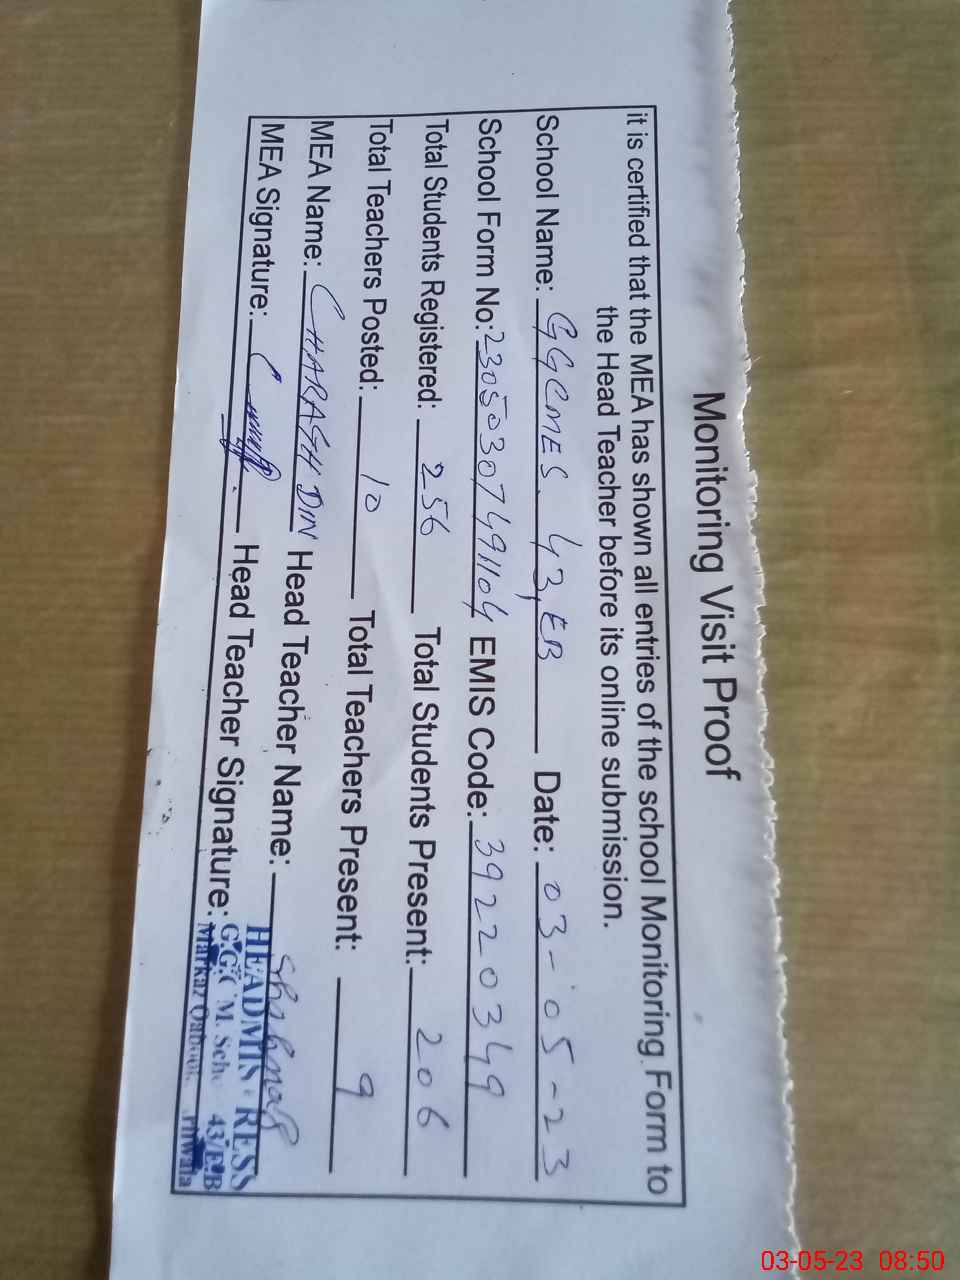 Monitoring Visit Proof
it is certified that the MEA has shown all entries of the school Monitoring Form to
the Head Teacher before its online submission.
School Name: GGCMES 43, EB Date: 03-05-23
School Form No: 230503074991104 EMIS Code: 39220349
Total Students Registered: 256 Total Students Present: 206
Total Teachers Posted: 10 Total Teachers Present: 9
MEA Name: CHARAGH DIN Head Teacher Name: Shahnaz
MEA Signature: Head Teacher Signature:
HEADMISTRESS
G.G.C.M. Sch 43/E.B
Markaz
03-05-23 08:50